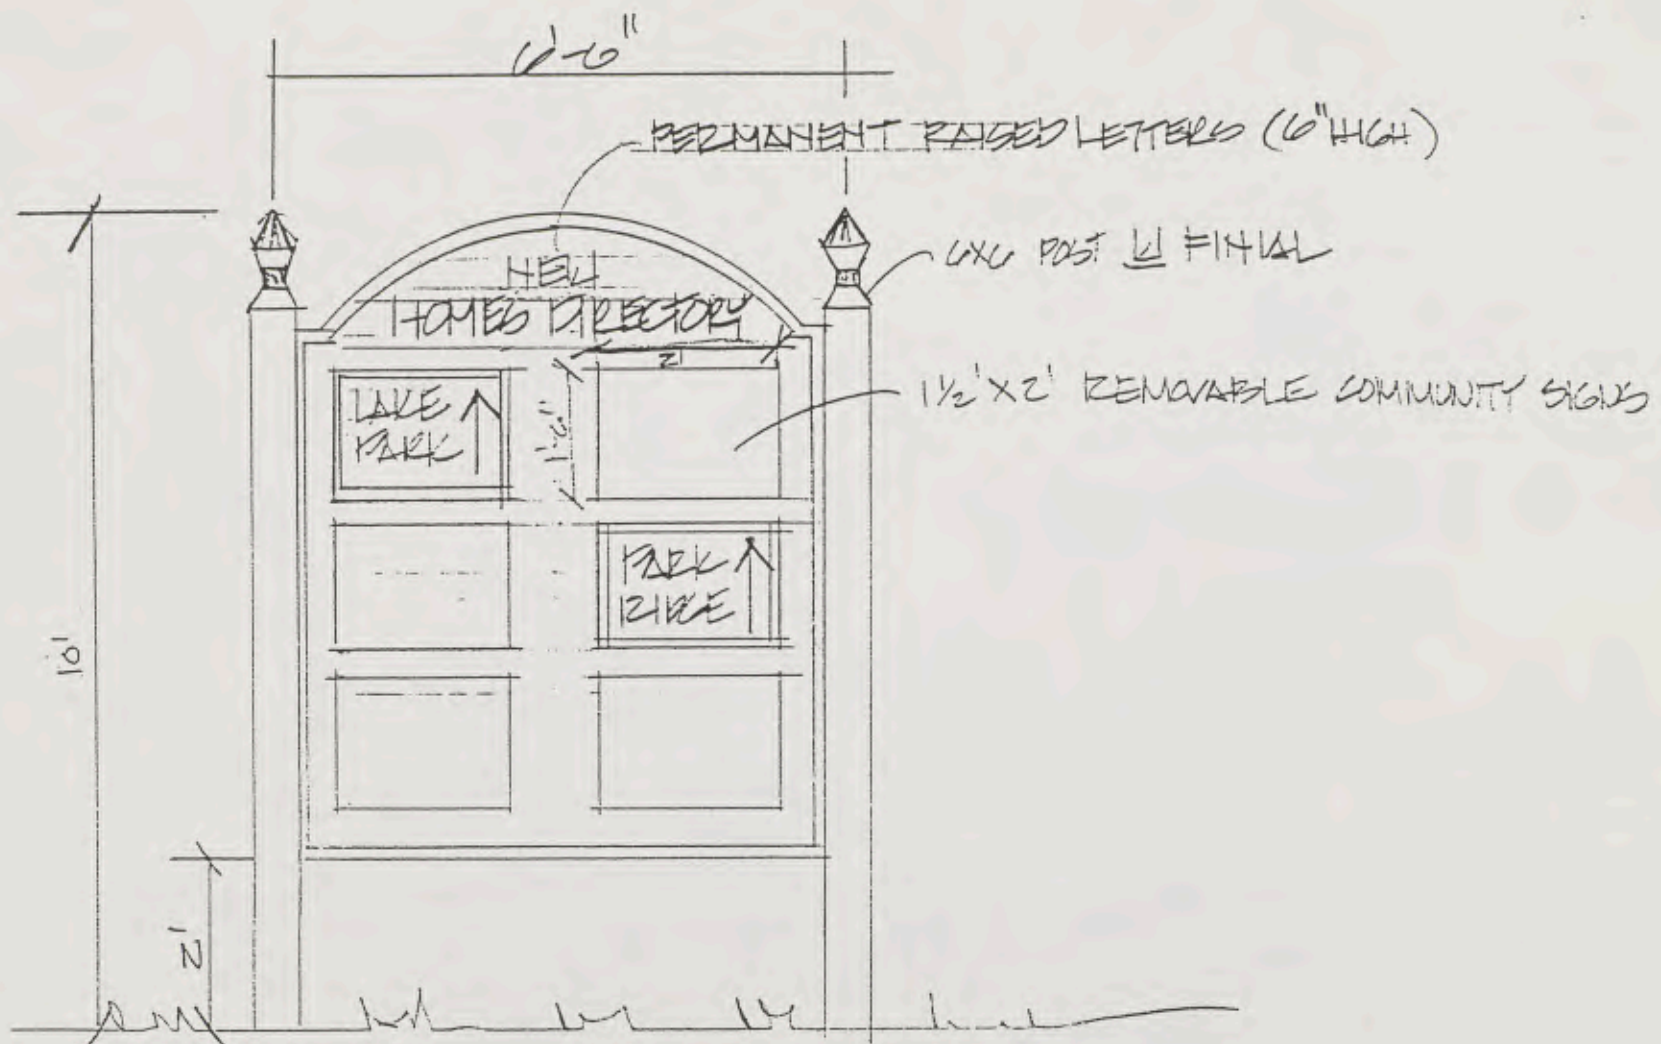 6'-6"
PERMANENT RAISED LETTERS (6" HIGH)
6X6 POST W/ FINIAL
NEW
HOMES DIRECTORY
2'
1½' X 2' REMOVABLE COMMUNITY SIGNS
LAKE
PARK
1'-6"
PARK
RIDGE
10'
2'